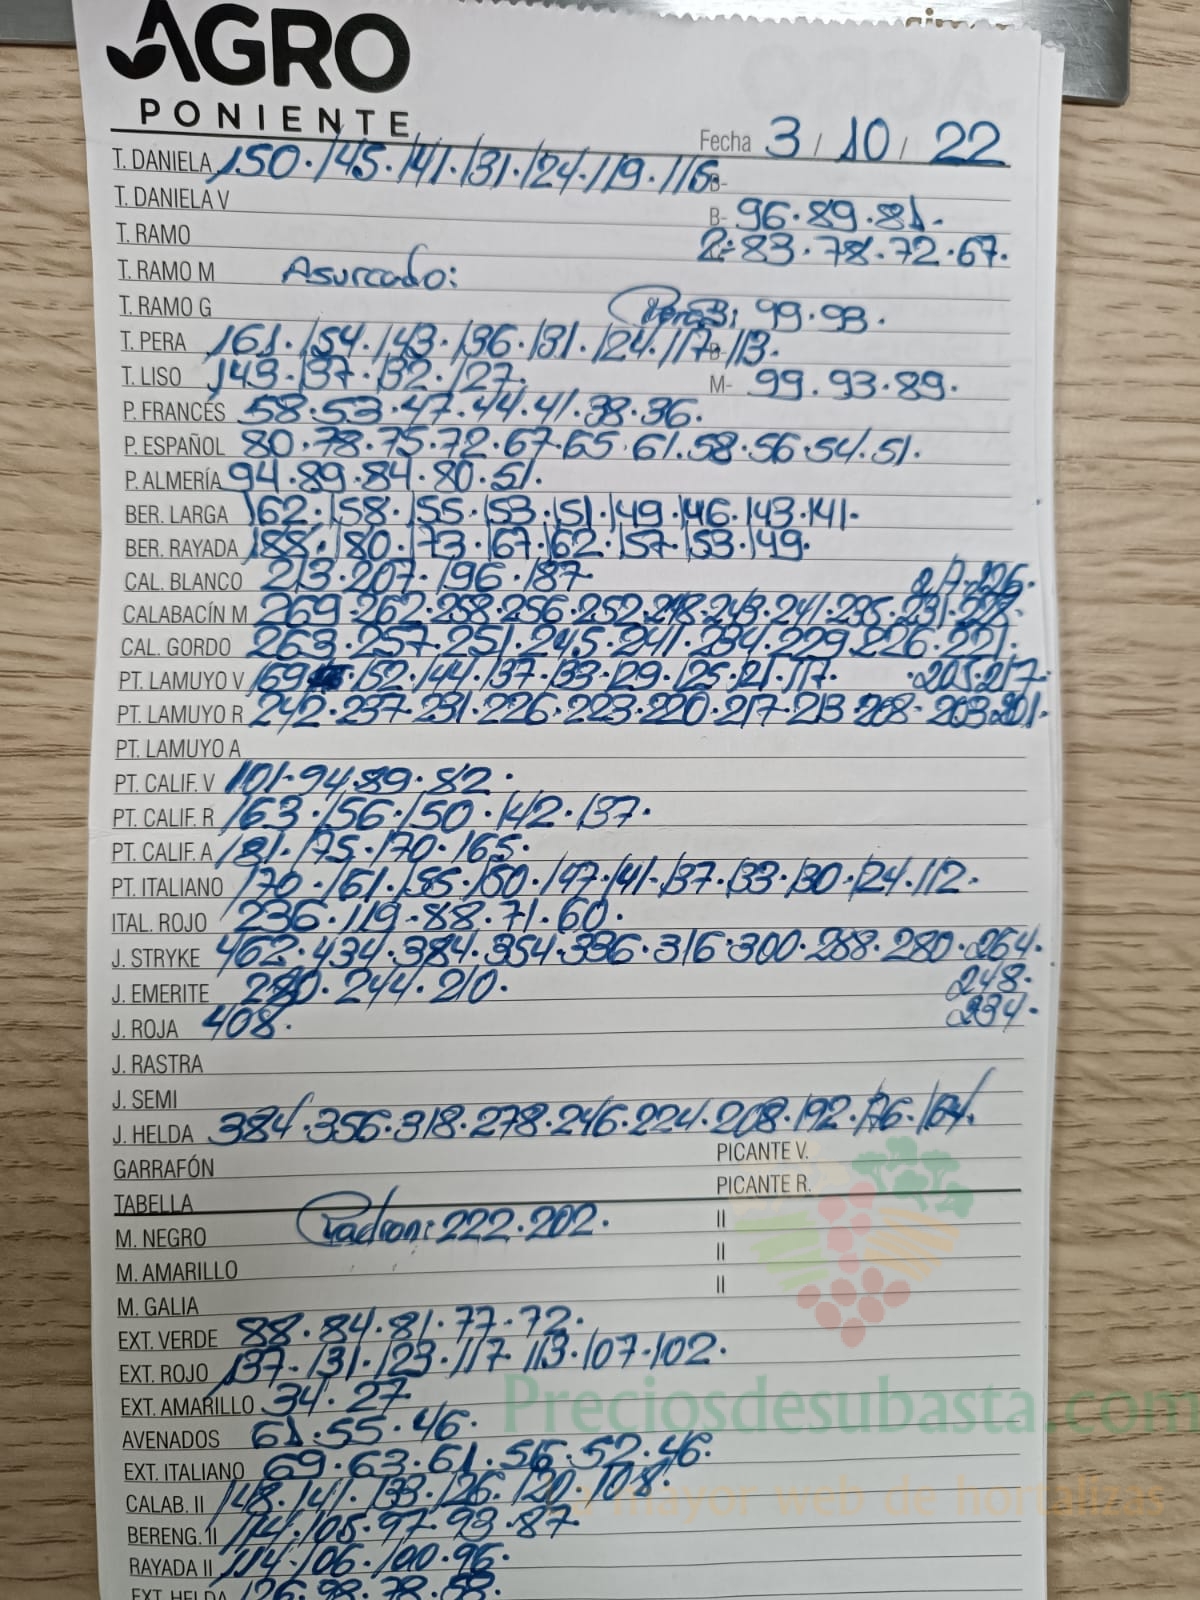 AGRO
PONIENTE
Fecha 3 / 10 / 22
T. DANIELA 150·145·141·131·124·119·116· B-
T. DANIELA V B- 96·89·81·
T. RAMO 2: 83·78·72·67·
T. RAMO M Asurcado:
T. RAMO G 99·93·
T. PERA 161·154·143·136·131·124·117·113· B-
T. LISO 143·137·132·127· M- 99·93·89·
P. FRANCÉS 58·53·47·44·41·38·36·
P. ESPAÑOL 80·78·75·72·67·65·61·58·56·54·51·
P. ALMERÍA 94·89·84·80·51·
BER. LARGA 162·158·155·153·151·149·146·143·141·
BER. RAYADA 188·180·173·167·162·157·153·149·
CAL. BLANCO 213·207·196·187· 217·226·
CALABACÍN M 269·262·258·256·252·248·243·241·235·231·228·
CAL. GORDO 263·257·251·245·241·234·229·226·221·
PT. LAMUYO V 169·152·144·137·133·129·125·121·117· ·205·217·
PT. LAMUYO R 242·237·231·226·223·220·217·213·208·203·201·
PT. LAMUYO A
PT. CALIF. V 101·94·89·82·
PT. CALIF. R 163·156·150·142·137·
PT. CALIF. A 181·175·170·165·
PT. ITALIANO 170·161·155·150·147·141·137·133·130·124·112·
ITAL. ROJO 236·119·88·71·60·
J. STRYKE 462·434·384·354·336·316·300·288·280·264·
J. EMERITE 280·244·210· 248·
J. ROJA 408· 234·
J. RASTRA
J. SEMI
J. HELDA 384·356·318·278·246·224·208·192·176·164·
GARRAFÓN PICANTE V.
TABELLA PICANTE R.
M. NEGRO Padron: 222·202· II
M. AMARILLO II
M. GALIA II
EXT. VERDE 88·84·81·77·72·
EXT. ROJO 137·131·123·117·113·107·102·
EXT. AMARILLO 34·27
Preciosdesubasta.com
AVENADOS 61·55·46·
EXT. ITALIANO 69·63·61·56·52·46·
CALAB. II 148·141·133·126·120·108·
mayor web de hortalizas
BERENG. II 114·105·97·93·87·
RAYADA II 114·106·100·96·
EXT. HELDA 126·98·78·58·